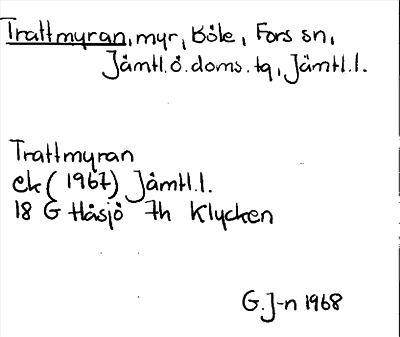 Trattmyran, myr, Böle, Fors sn,
Jämtl.ö.doms.tg, Jämtl.l.
Trattmyran
ek (1967) Jämtl.l.
18 G Håsjö 7h Klycken
G.J-n 1968